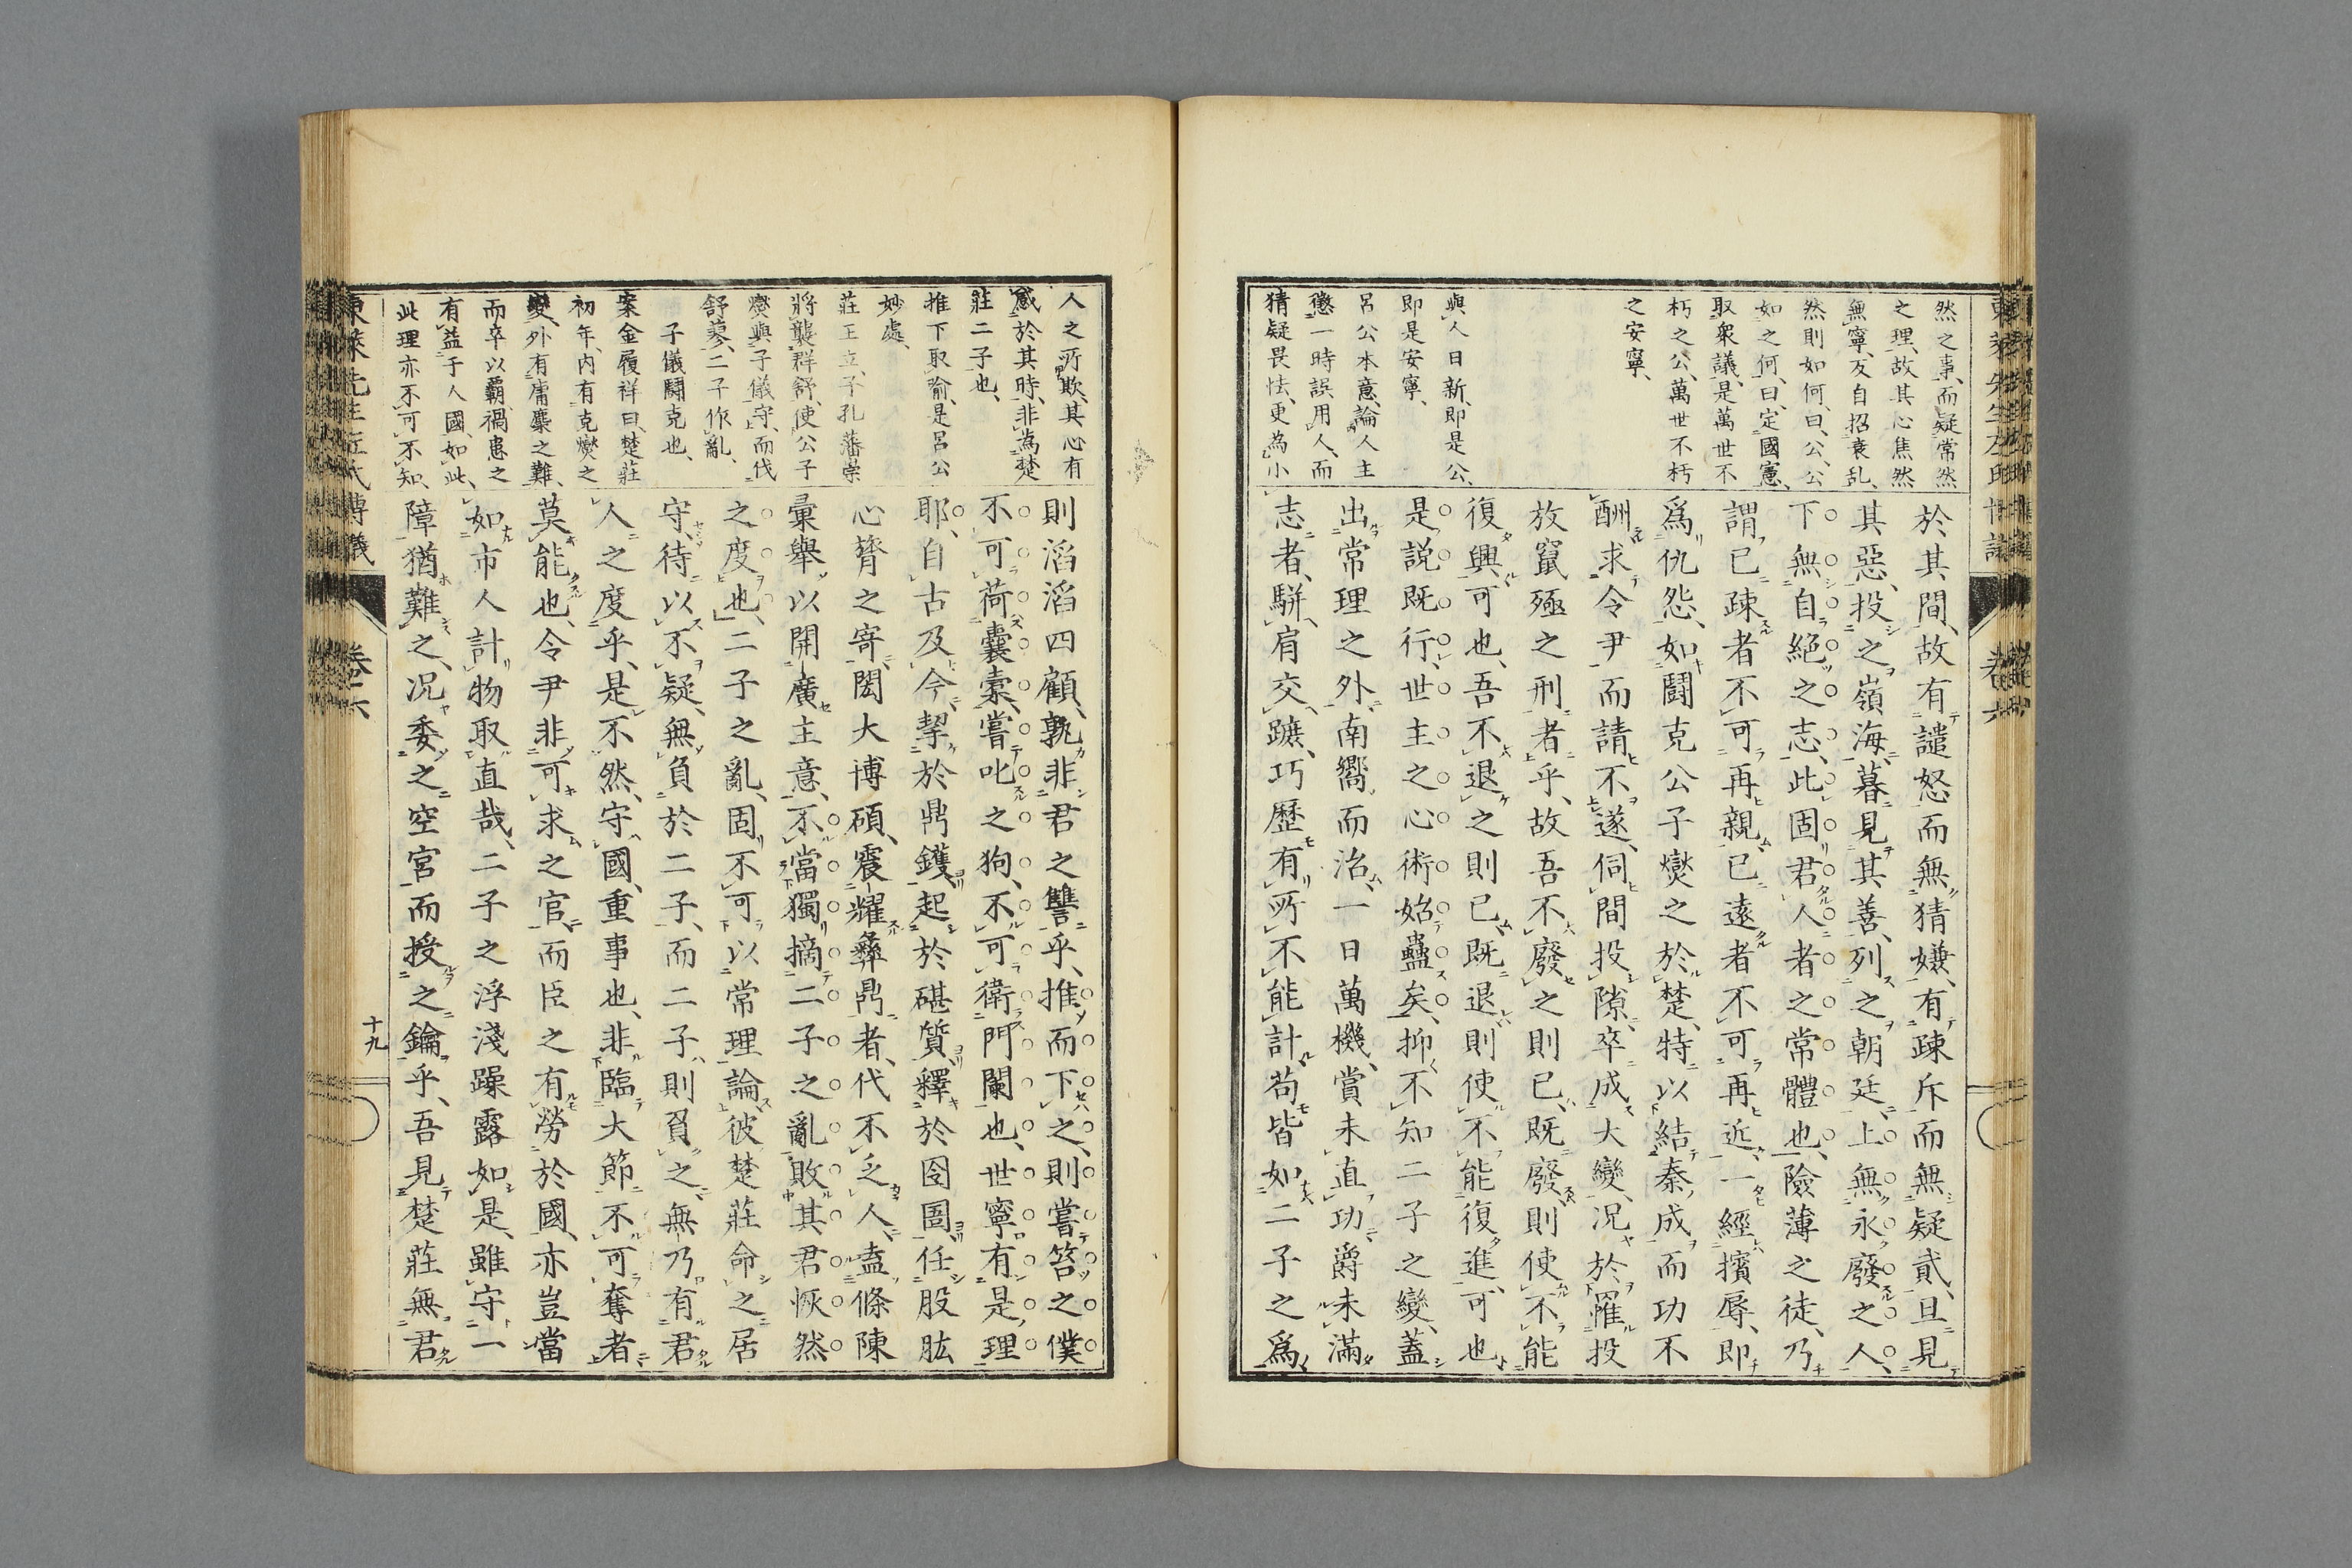 然之事、而疑常然
之理、故其心焦然
無寧、反自招衰乱、
然則如何、曰、公、公
如之何、曰、定國憲、
取衆議、是萬世不
朽之公、萬世不朽
之安寧、
與人日新、即是公、
即是安寧、
呂公本意、論人主
懲一時誤用人、而
猜疑畏怯、更為小
於其間、故有譴怒而無猜嫌、有疎斥而無疑貳、旦見
其惡、投之嶺海、暮見其善、列之朝廷、上無永廢之人、
下無自絕之志、此固君人者之常體也、險薄之徒、乃
謂已疎者不可再親、已遠者不可再近、一經擯辱、即
爲仇怨、如鬪克公子燮之於楚、特以結秦成而功不
酬、求令尹而請不遂、伺間投隙、卒成大變、況於罹投
放竄殛之刑者乎、故吾不廢之則已、既廢則使不能
復興可也、吾不退之則已、既退則使不能復進可也、
是說既行、世主之心術始蠱矣、抑不知二子之變、蓋
出常理之外、南嚮而治、一日萬機、賞未直功、爵未滿
志者、駢肩交蹠、巧歷有所不能計、苟皆如二子之爲
東萊先生左氏博議
卷六
人之所欺、其心有
感於其時、非為楚
莊二子也、
推下取喻、是呂公
妙處、
莊王立、子孔潘崇
將襲群舒、使公子
燮與子儀守、而伐
舒蓼、二子作亂、
子儀鬪克也、
案金履祥曰、楚莊
初年、內有克燮之
變、外有庸麋之難、
而卒以霸、禍患之
有益于人國、如此、
此理亦不可不知、
則滔滔四顧、孰非君之讐乎、推而下之、則嘗笞之僕
不可荷囊橐、嘗叱之狗、不可衛門闌也、世寧有是理
耶、自古及今、挈於鼎鑊、起於碪質、釋於囹圄、任股肱
心膂之寄、閎大博碩、震耀彝鼎者、代不乏人、盍條陳
彙舉、以開廣主意、不當獨摘二子之亂、敗其君恢然
之度也、二子之亂、固不可以常理論、彼楚莊命之居
守、待以不疑、無負於二子、而二子則負之、無乃有君
人之度乎、是不然、守國、重事也、非臨大節不可奪者、
莫能也、令尹非可求之官、而臣之有勞於國、亦豈當
如市人計物取直哉、二子之浮淺躁露如是、雖守一
障猶難之、況委之空宮而授之鑰乎、吾見楚莊無君
東萊先生左氏博議
卷六
十九